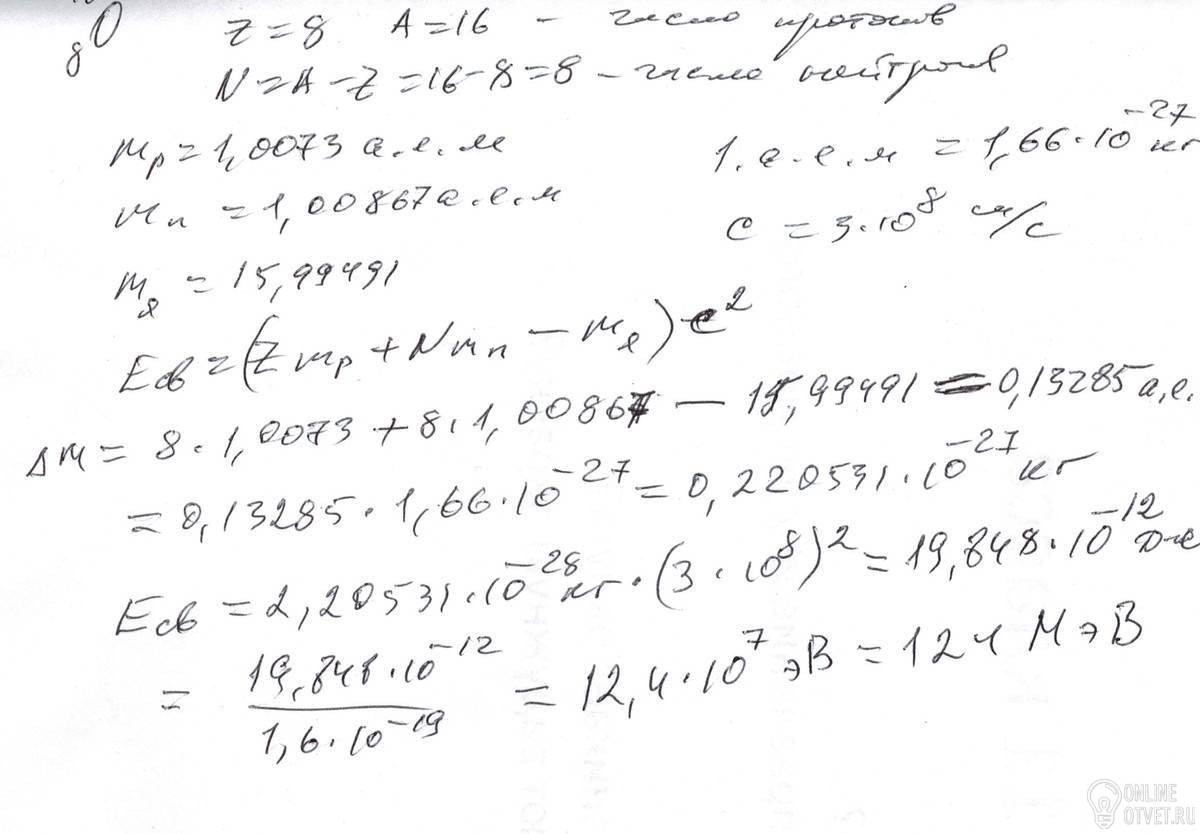 ₈O Z=8 A=16 – число протонов
N=A-Z=16-8=8 – число нейтронов
mp=1,0073 а.е.м 1.а.е.м=1,66·10⁻²⁷ кг
mn=1,00867 а.е.м c=3·10⁸ м/с
mя=15,99491
Eсв=(Zmp+Nmn–mя)c²
Δm=8·1,0073+8·1,00867–15,99491=0,13285 а,е.
=0,13285·1,66·10⁻²⁷=0,220531·10⁻²⁷ кг
Eсв=2,20531·10⁻²⁸ кг·(3·10⁸)²=19,848·10⁻¹² Дж
=19,848·10⁻¹²/1,6·10⁻¹⁹=12,4·10⁷ эВ=124 МэВ
ONLINE
OTVET.RU